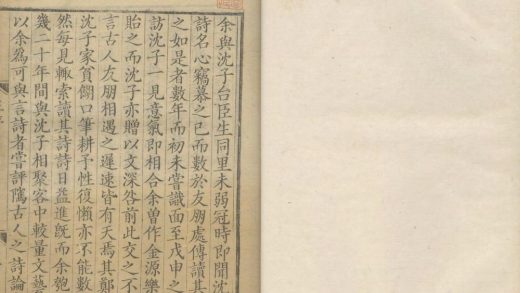 余與沈子台臣生同里未弱冠時即聞沈
詩名心竊慕之已而數於友朋處傳讀其
之如是者數年而初未嘗識面至戊申之
訪沈子一見意氣即相合余曽作金源樂
貽之而沈子亦贈以文深咎前此交之不
言古人友朋相遇之遲速皆有天焉其鄭
沈子家貧餬口筆耕予性復懶亦不能數
然每見輒索讀其詩詩日益進旣而余匏
幾二十年間與沈子相聚客中較量文藝
以余爲可與言詩者嘗評隲古人之詩論